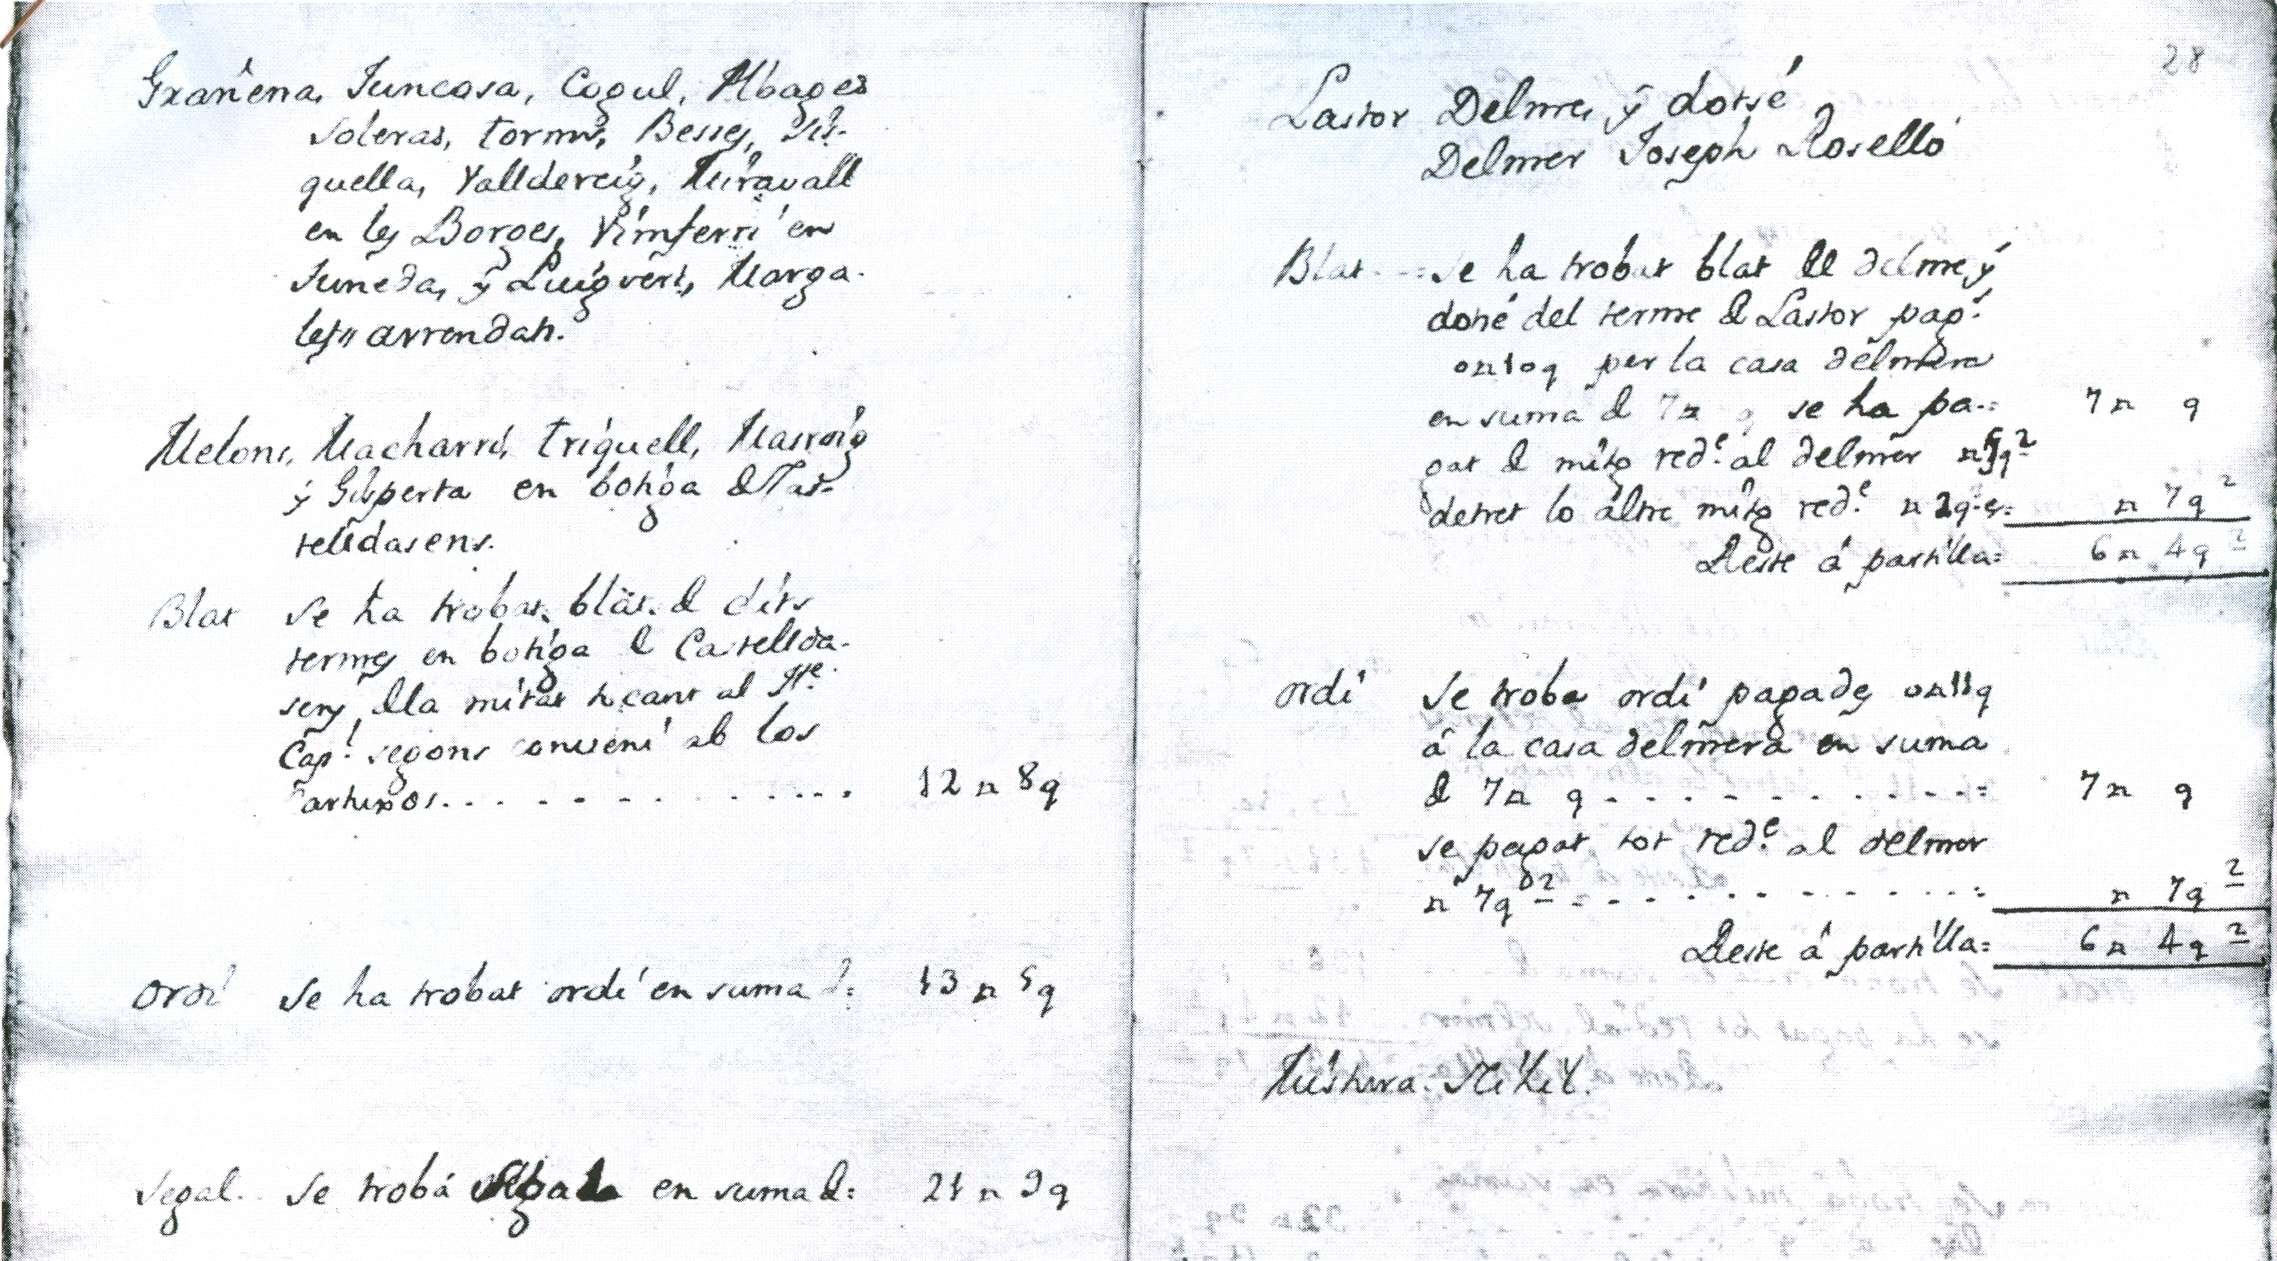 Grañena, Juncosa, Cogul, Albages
Soleras, Torms, Besses, Sis-
quella, Valldereig, Miravall
en les Borges, Vimferri en
Juneda, y Puigvert, Marga-
lef" arrendats.
Melons, Macharri, Triquell, Masroig
y Gisperta en botiga de Cas-
telldasens.
Blat Se ha trobat blat de dits
termes en botiga de Castellda-
sens, de la mitat tocant al Itte
Capl segons conveni ab los
Partixos. . . . . . . . . . . . 12 n 8 q
Ordi Se ha trobat ordi en suma d: 13 n 5 q
Segal. Se trobá en suma de: 21 n 9 q
28
Lastor Delme, y dotsé
Delmer Joseph Roselló
Blat Se ha trobat blat de delme, y
dotsé del terme de Lastor pagt
on10q per la casa delmera
en suma de 7 n q se ha pa-: 7 n q
gat de mitg rede al delmer
detret lo altre mitg rede n 7 q 2
Reste á partilla= 6 n 4 q 2
ordi Se troba ordi pagades on11q
á la casa delmera en suma
de 7 n q - - - - - - - - = 7 n q
se pagat tot rede al delmer
n 7 q 2 = - - - - - - - = n 7 q 2
Reste á partilla= 6 n 4 q 2
Mistura. Nihil.